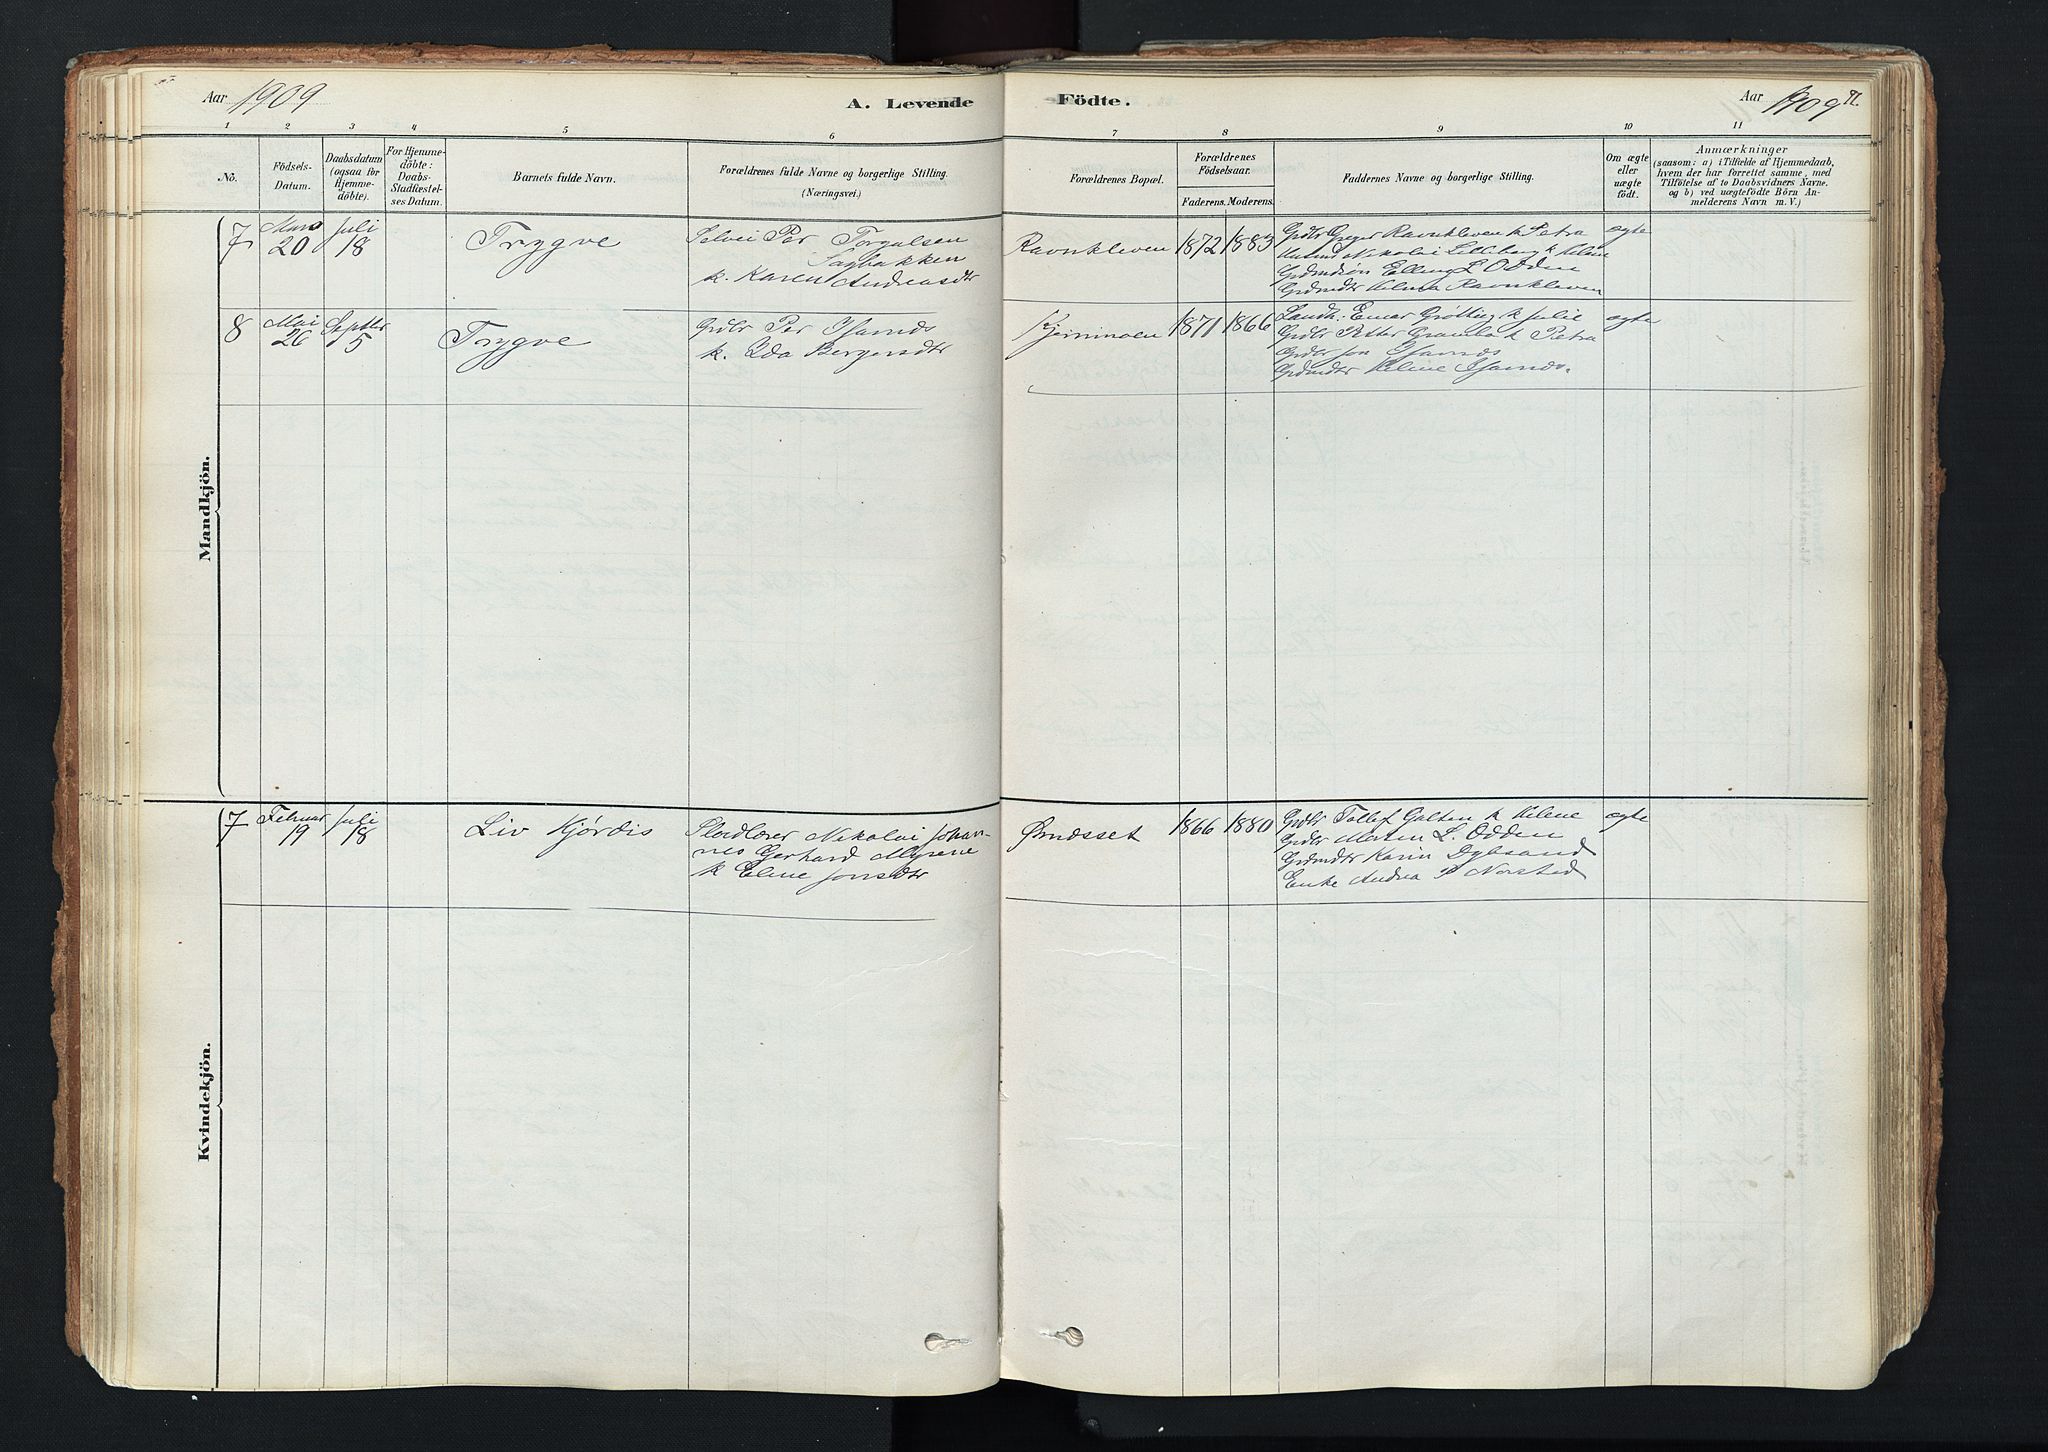 Aar 1909
A. Levende
Födte.
Aar 1909
71.
1 2 3 4 5 6
7 8 9 10 11
No.
Födsels-
Datum.
Daabsdatum
(ogsaa for
Hjemme-
döbte).
For Hjemme-
döbte:
Daabs-
Stadfæstel-
ses Datum.
Barnets fulde Navn.
Forældrenes fulde Navne og borgerlige Stilling.
(Næringsvei.)
Forældrenes Bopæl.
Forældrenes
Födselsaar.
Faderens. Moderens.
Faddernes Navne og borgerlige Stilling.
Om ægte
eller
uægte
födt.
Anmærkninger
(saasom: a) i Tilfælde af Hjemmedaab,
hvem der har forrettet samme, med
Tilföielse af to Daabsvidners Navne.
og b) ved uægtefödte Börn An-
melderens Navn m. V.)
Mandkjön.
7
Mars
20
Juli
18
Trygve
Selvei Per Torgalsen
Sagbakken
k. Karen Andreasdtr
Ravnkleven
1872 1883
Grdbr Greger Ravnkleven k Petra
Nikolai
Grdmdsøn Elling L Odden
Grdmdtr Helma Ravnkleven
ægte
8
Mai
26
Septbr
5
Trygve
Grdbr Per
k. Ida Bergersdtr
1871 1866
Landh. Einar Grøtting k Julie
Grdbr Petter k Petra
Grdbr Jon
Grdmdtr Helene
ægte
Kvindekjön.
7
Februar
19
Juli
18
Liv Hjørdis
Nikolai Johan-
nes Gerhard Myrene
k Eline Jonsdtr
Ørnæsset
1866 1880
Grdbr Tollef Galten k Helene
Grdbr Morten L. Odden
Grdmdtr Karin
Enke Andrea P Norsted
ægte